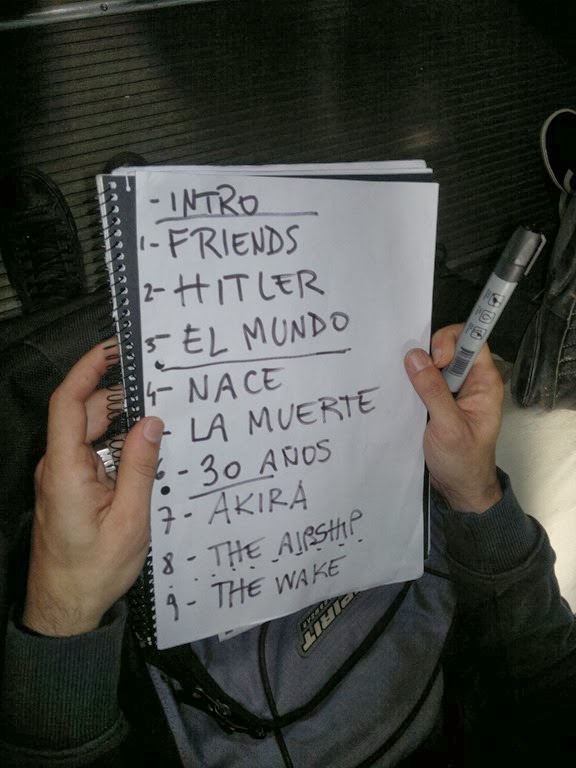 - INTRO
1- FRIENDS
2- HITLER
3- EL MUNDO
4- NACE
- LA MUERTE
6 - 30 AÑOS
7 - AKIRA
8 - THE AIRSHIP
9 - THE WAKE